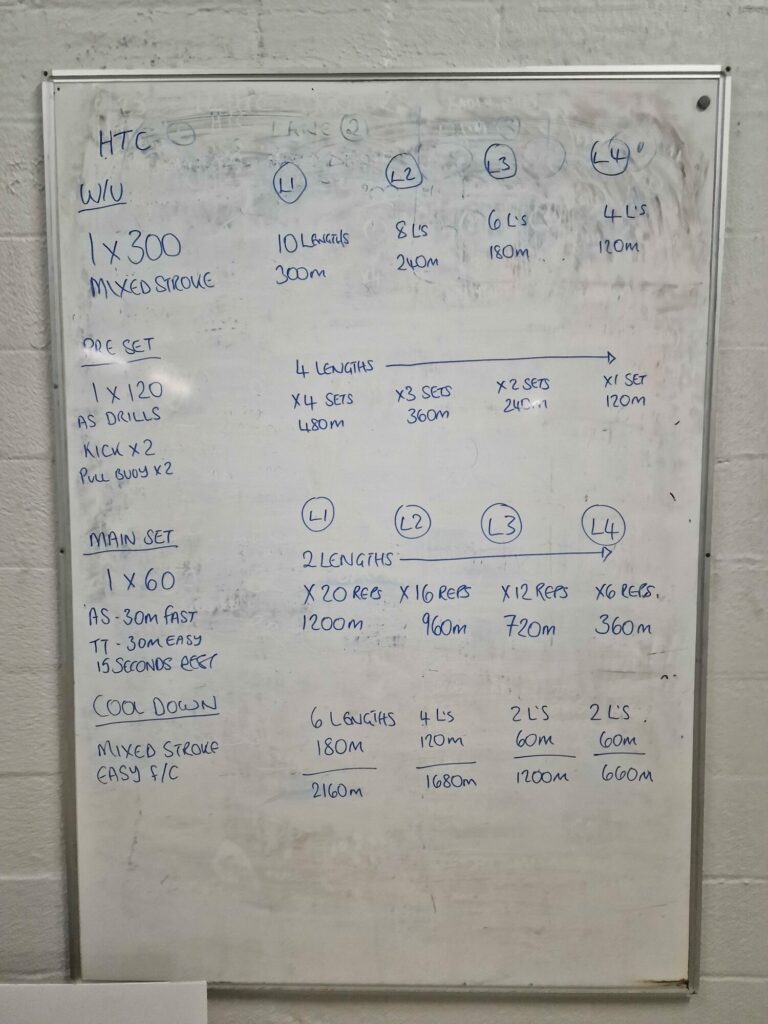 HTC
W/U L1 L2 L3 L4
1 X 300 10 LENGTHS 8 L'S 6 L'S 4 L'S
MIXED STROKE 300m 240m 180m 120m
PRE SET
4 LENGTHS
1 X 120 X4 SETS X3 SETS X2 SETS X1 SET
AS DRILLS 480m 360m 240m 120m
KICK X2
PULL BUOY X2
L1 L2 L3 L4
MAIN SET
2 LENGTHS
1 X 60 X 20 REPS X 16 REPS X 12 REPS X6 REPS.
AS - 30m FAST 1200m 960m 720m 360m
TT - 30m EASY
15 SECONDS REST
COOL DOWN
6 LENGTHS 4 L'S 2 L'S 2 L'S
MIXED STROKE 180m 120m 60m 60m
EASY F/C 2160m 1680m 1200m 660m